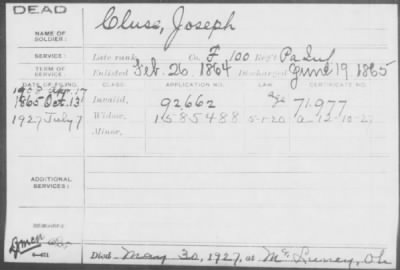 DEAD
NAME OF SOLDIER: Cluss, Joseph
SERVICE: Late rank, Co. F, 100 Reg't Pa Inf
TERM OF SERVICE: Enlisted Feb. 26, 1864 Discharged June 19 1865
DATE OF FILING CLASS. APPLICATION NO. LAW CERTIFICATE NO.
17
1865 Oct. 13 Invalid, 92662 Age 71,977
1927 July 7 Widow, 1585488 5-1-20 a 12-10-27
Minor,
ADDITIONAL SERVICES:
REMARKS:
Died May 30, 1927, at McLuney, Oh